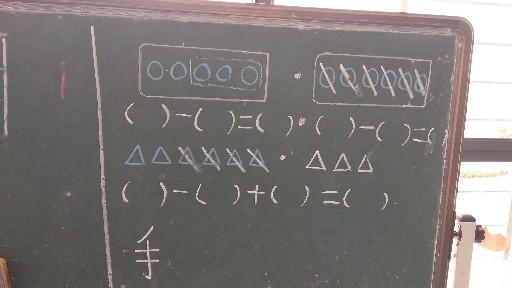 ( )-( )=( ) · ( )-( )=(
( )-( )+( )=( ).
手